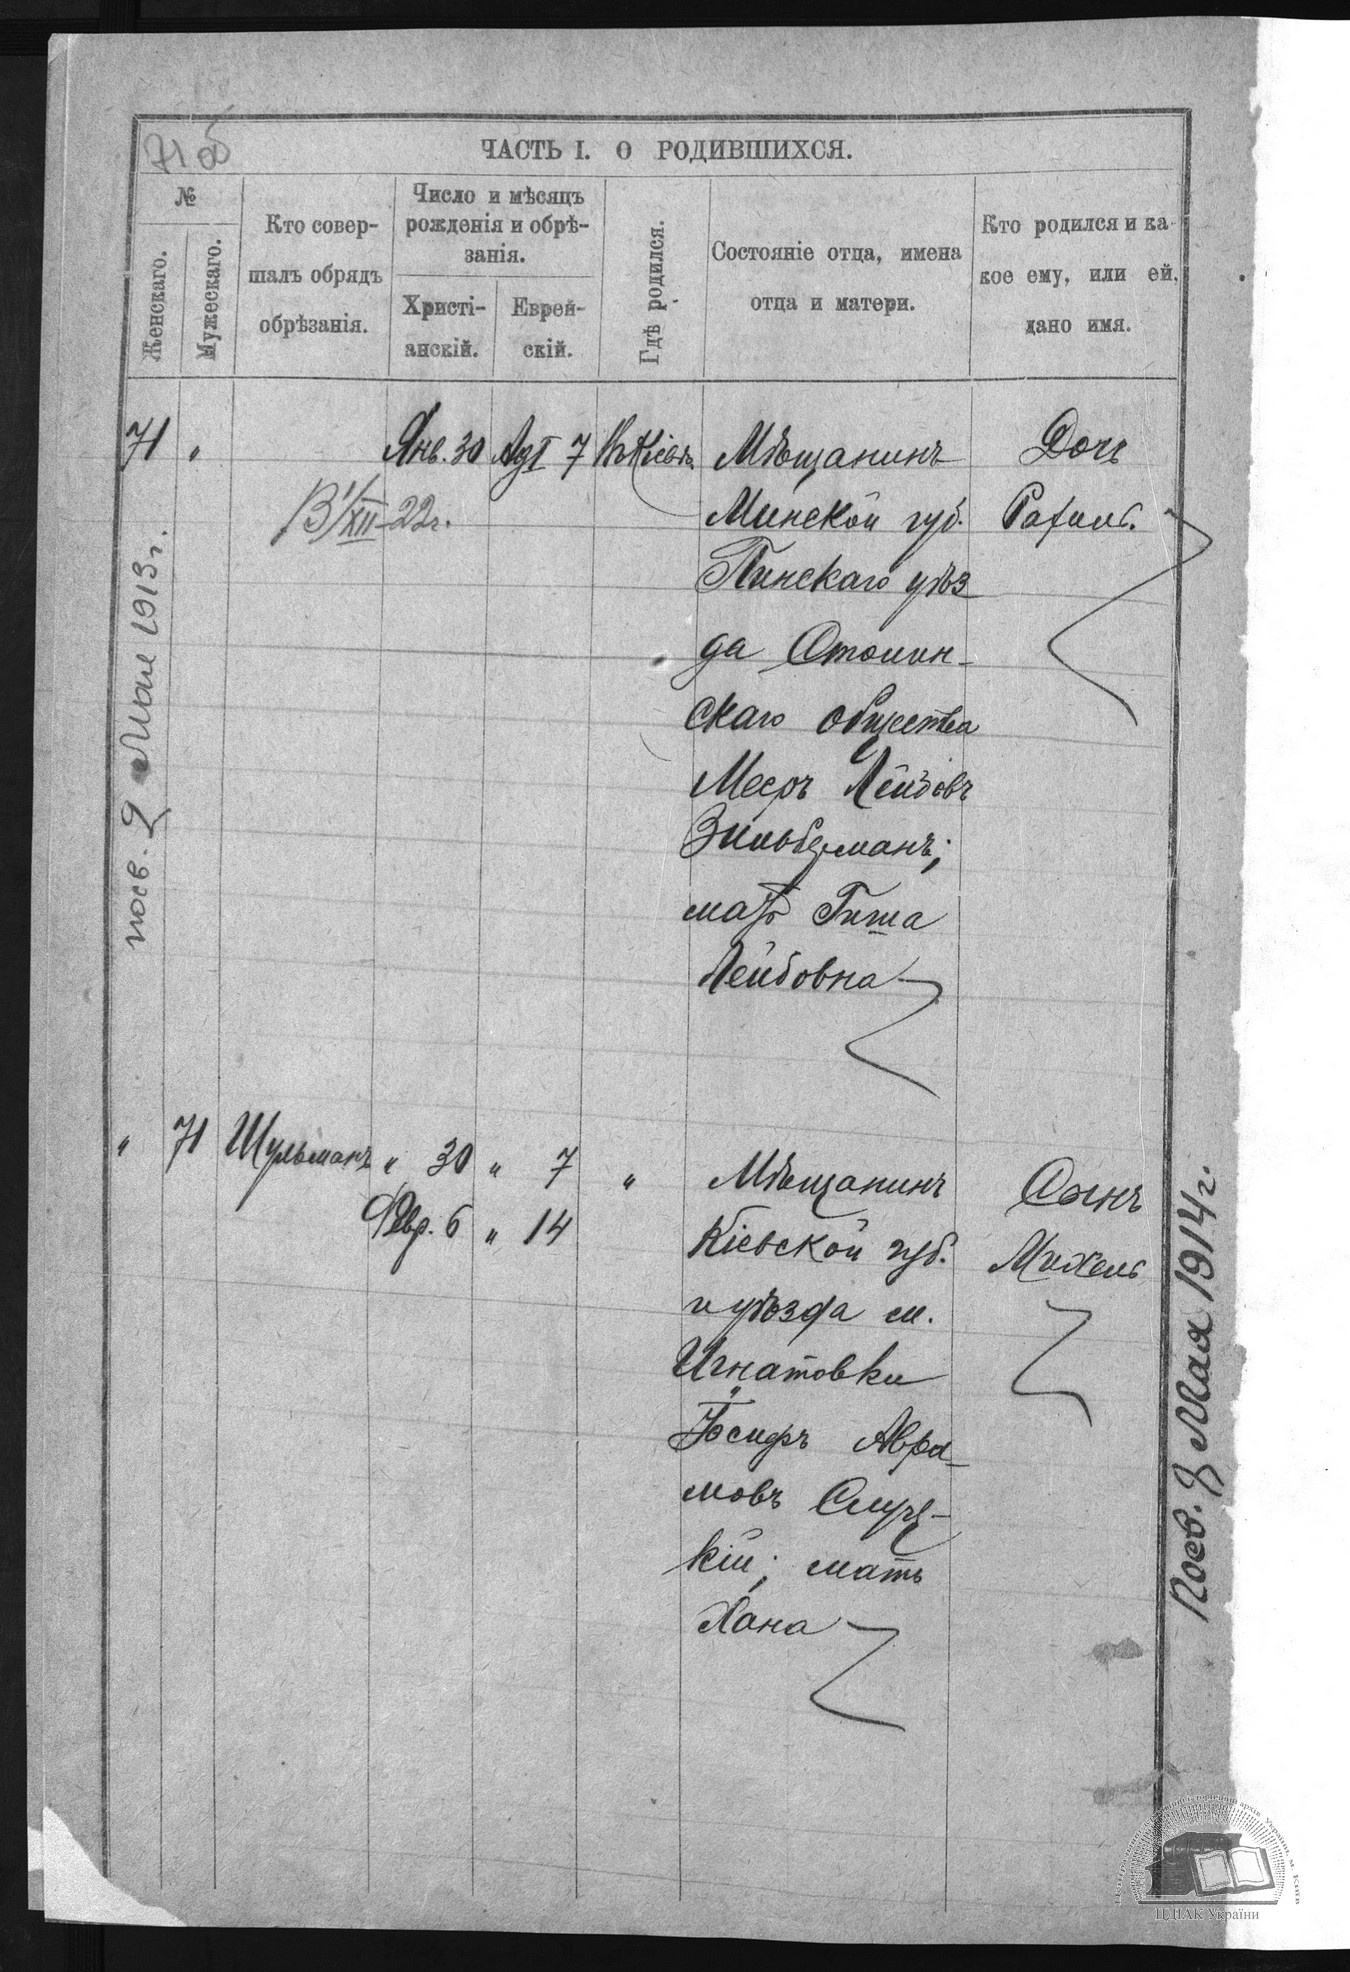 71 об
ЧАСТЬ I. О РОДИВШИХСЯ.
№
Женскаго.
Мужескаго.
Кто совер-
шалъ обрядъ
обрѣзанія.
Число и мѣсяцъ
рожденія и обрѣ-
занія.
Христі-
анскій.
Еврей-
скій.
Гдѣ родился.
Состояніе отца, имена
отца и матери.
Кто родился и ка-
кое ему, или ей,
дано имя.
71 " Янв. 30 Ад I 7 Въ Кіевѣ
В 1/XII-22г.
Мѣщанинъ
Минской губ.
Пинскаго уѣз
да Столин-
скаго общества
Мееръ Лейбовъ
Зильберманъ;
мать Гитя
Лейбовна
Дочь
Рахиль.
посв. 9 Мая 1913 г.
" 71 Шульманъ " 30 " 7 "
Февр. 6 " 14
Мѣщанинъ
Кіевской губ.
и уѣзда м.
Игнатовки
Іосифъ Авра-
мовъ Слуц-
кій; мать
Хана
Сынъ
Михель
Посв. 9 Мая 1914 г.
ЦДІАК України